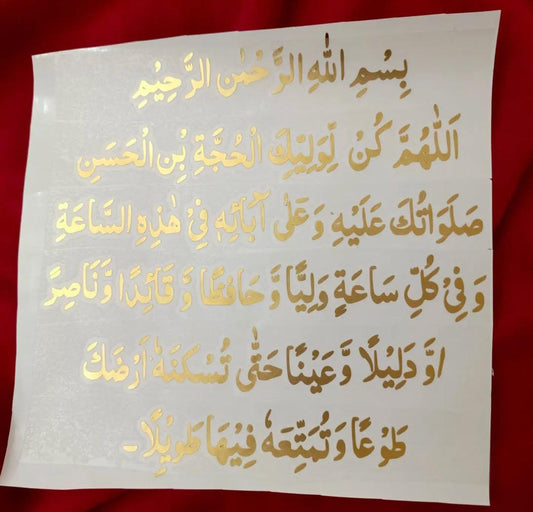 بِسْمِ اللّٰهِ الرَّحْمٰنِ الرَّحِيْمِ
اَللّٰهُمَّ كُنْ لِّوَلِيِّكَ الْحُجَّةِ بْنِ الْحَسَنِ
صَلَوَاتُكَ عَلَيْهِ وَعَلٰى آبَائِهٖ فِيْ هٰذِهِ السَّاعَةِ
وَفِيْ كُلِّ سَاعَةٍ وَلِيًّا وَّحَافِظًا وَّقَائِدًا وَّنَاصِرً
اوَّ دَلِيْلًا وَّعَيْنًا حَتّٰى تُسْكِنَهٗ اَرْضَكَ
طَوْعًا وَتُمَتِّعَهٗ فِيْهَا طَوِيْلًا۔